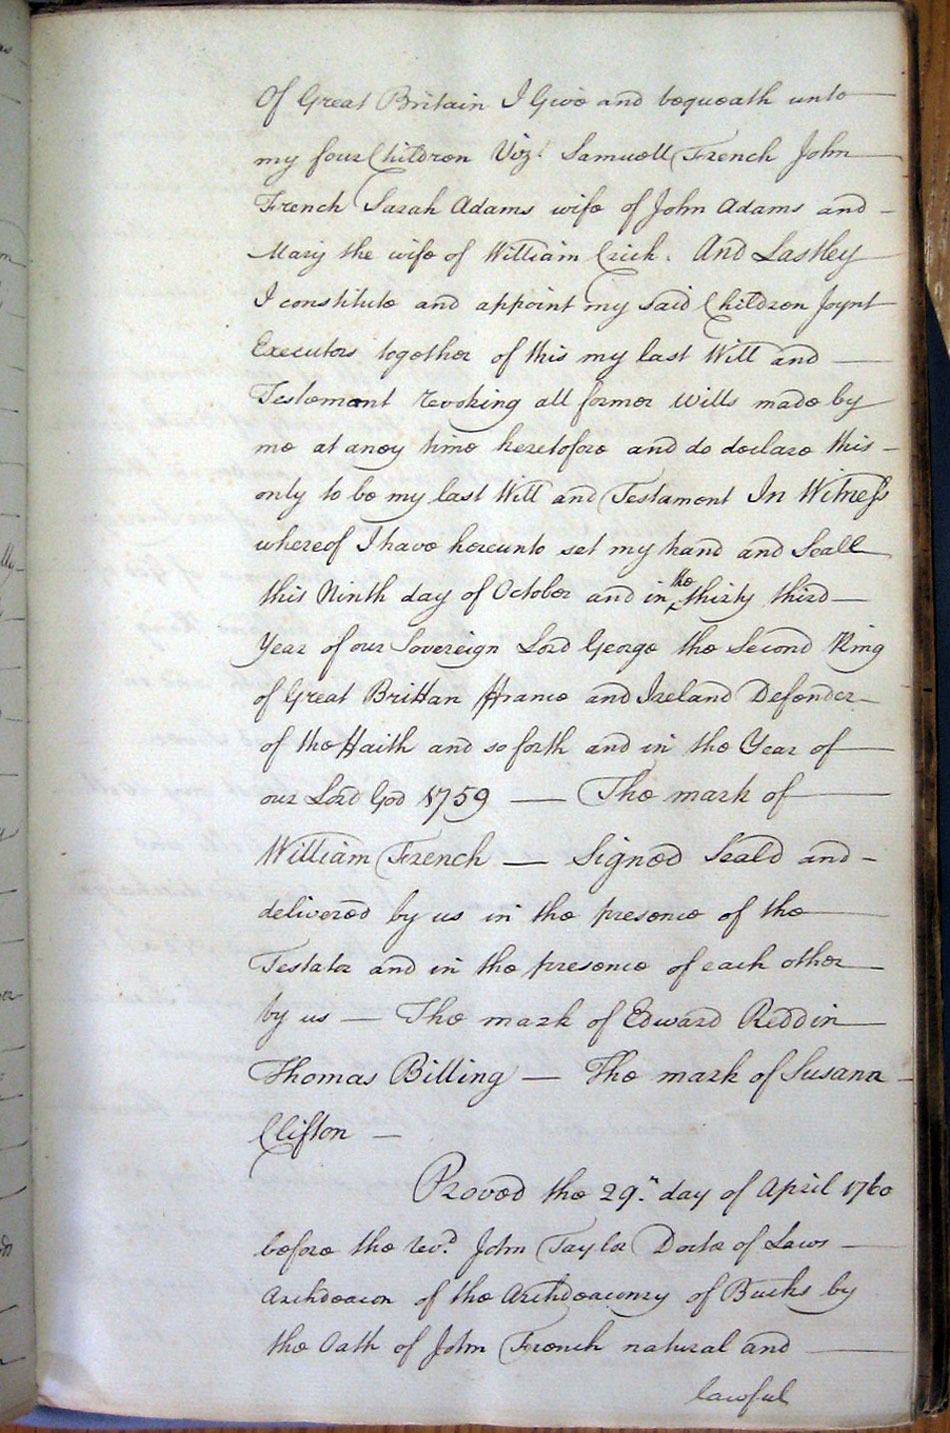 Of Great Britain I Give and bequeath unto
my four Children Vizt. Samuell French John
French Sarah Adams wife of John Adams and
Mary the wife of William Crick. And Lastley
I constitute and appoint my said Children Joynt
Executors together of this my last Will and
Testement revoking all former Wills made by
me at aney time heretofore and do declare this
only to be my last Will and Testament In Witness
whereof I have hereunto set my hand and Seall
this Ninth day of October and in the thirty third
Year of our Sovereign Lord George the Second King
of Great Brittan ffrance and Ireland Defender
of the ffaith and so forth and in the Year of
our Lord God 1759 — The mark of
William French — Signed Seald and
delivered by us in the presence of the
Testator and in the presence of each other
by us — The mark of Edward Reddin
Thomas Billing — The mark of Susanna
Clifton —
Proved the 29.th day of April 1760
before the Revd. John Taylor Doctor of Laws
Archdeacon of the Archdeaconry of Bucks by
the Oath of John French natural and
lawful